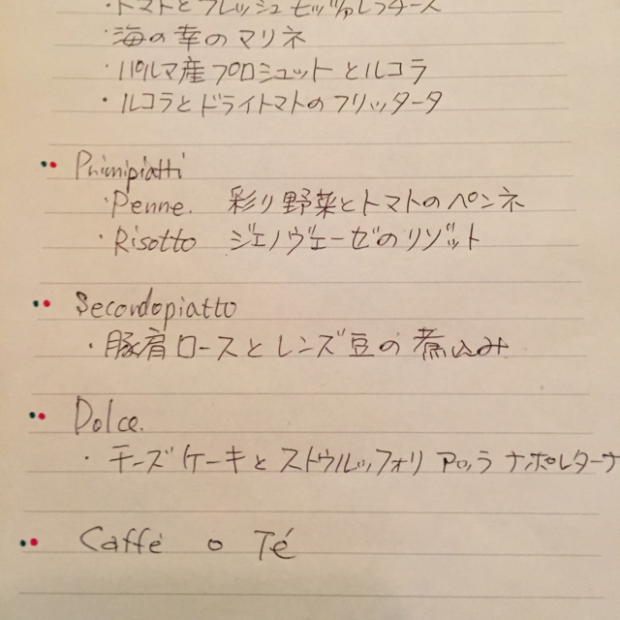 ・トマトとフレッシュモッツァレラチーズ
・海の幸のマリネ
・パルマ産プロシュットとルコラ
・ルコラとドライトマトのフリッタータ
Primipiatti
・Penne. 彩り野菜とトマトのペンネ
・Risotto ジェノヴェーゼのリゾット
Secondopiatto
・豚肩ロースとレンズ豆の煮込み
Dolce.
・チーズケーキとストゥルッフォリ アッラ ナポレターナ
Caffé o Té